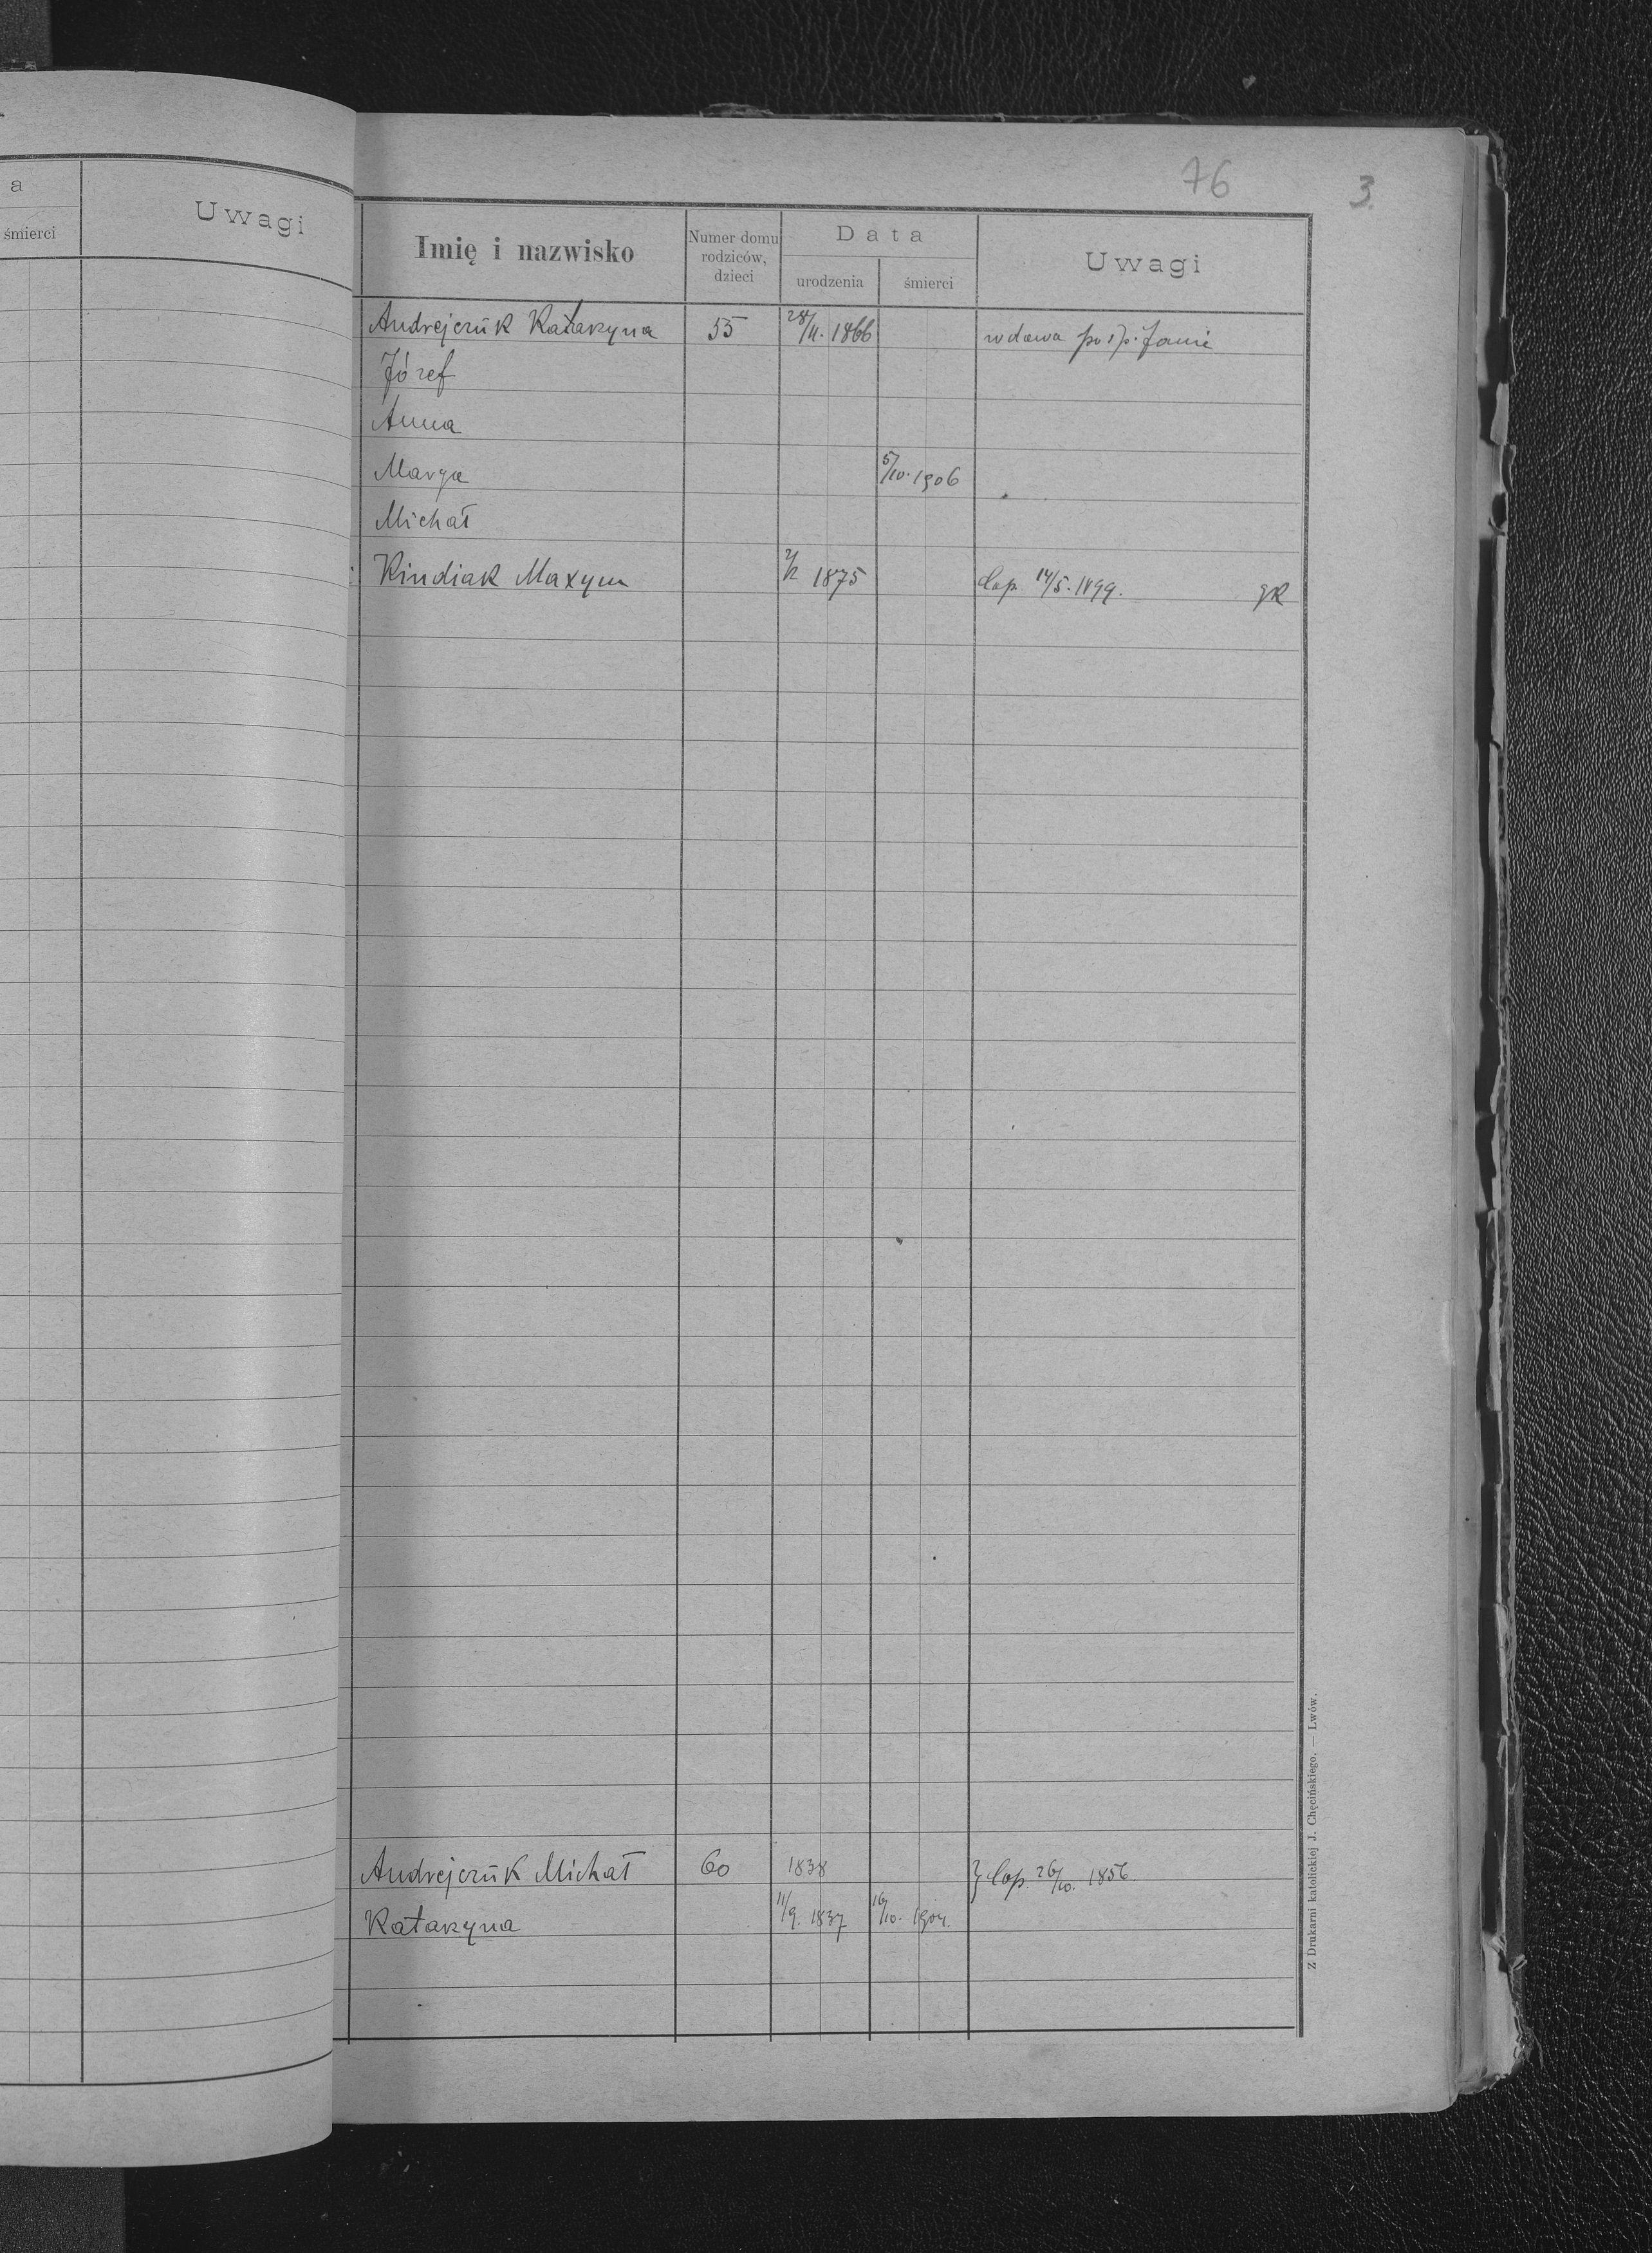 76
3.
a
śmierci
Uwagi
Imię i nazwisko
Numer domu rodziców, dzieci
Data
urodzenia
śmierci
Uwagi
Andrejczūk Katarzyna 55 28/11. 1866 wdowa po śp. Janie
Józef
Anna
Marya 5/10. 1906
Michał
Kindiak Maxym 1875 Cop. 14/5. 1899. gk
Andrejczūk Michał 60 1838 } Cop. 26/10. 1856
Katarzyna 11/9. 1837 16/10. 1904.
Z Drukarni katolickiej J. Chęcińskiego. — Lwów.